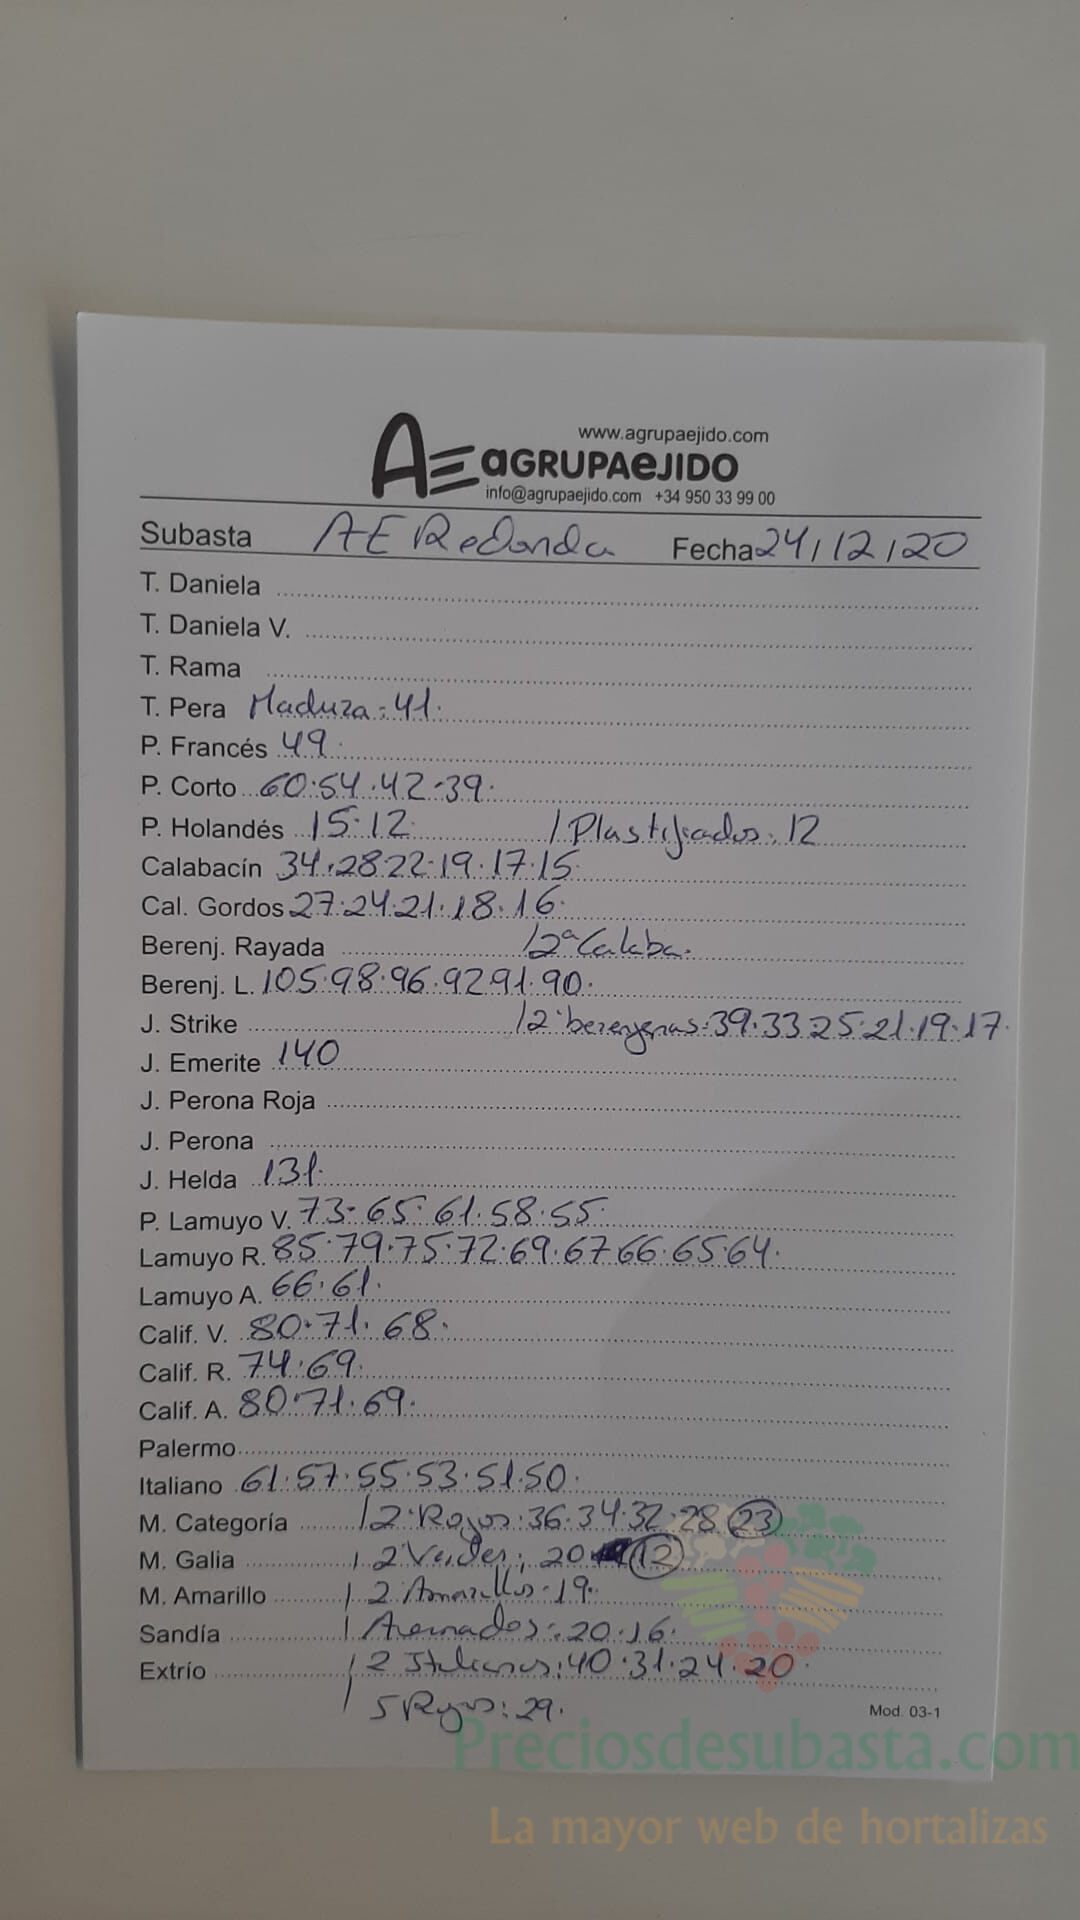 www.agrupaejido.com
AE aGRUPAeJIDO
info@agrupaejido.com +34 950 33 99 00
Subasta AE Redonda Fecha 24/12/20
T. Daniela
T. Daniela V.
T. Rama
T. Pera Madura: 41.
P. Francés 49.
P. Corto 60.54.42.39.
P. Holandés 15.12 / Plastificados: 12
Calabacín 34.28.22.19.17.15
Cal. Gordos 27.24.21.18.16.
Berenj. Rayada / 2ª Calaba.
Berenj. L. 105.98.96.92.91.90.
J. Strike / 2ª berenjenas: 39.33.25.21.19.17.
J. Emerite 140
J. Perona Roja
J. Perona
J. Helda 131.
P. Lamuyo V. 73.65.61.58.55.
Lamuyo R. 85.79.75.72.69.67.66.65.64.
Lamuyo A. 66.61.
Calif. V. 80.71.68.
Calif. R. 74.69.
Calif. A. 80.71.69.
Palermo
Italiano 61.57.55.53.51.50.
M. Categoría / 2ª Rojos: 36.34.32.28 23
M. Galia / 2ª Verdes: 20 12
M. Amarillo / 2ª Amarillos: 19.
Sandía / Asurnados: 20.16.
Extrío / 2 Italianos: 40.31.24.20.
/ 5 Rojos: 29.
Mod. 03-1
Preciosdesubasta.com
La mayor web de hortalizas